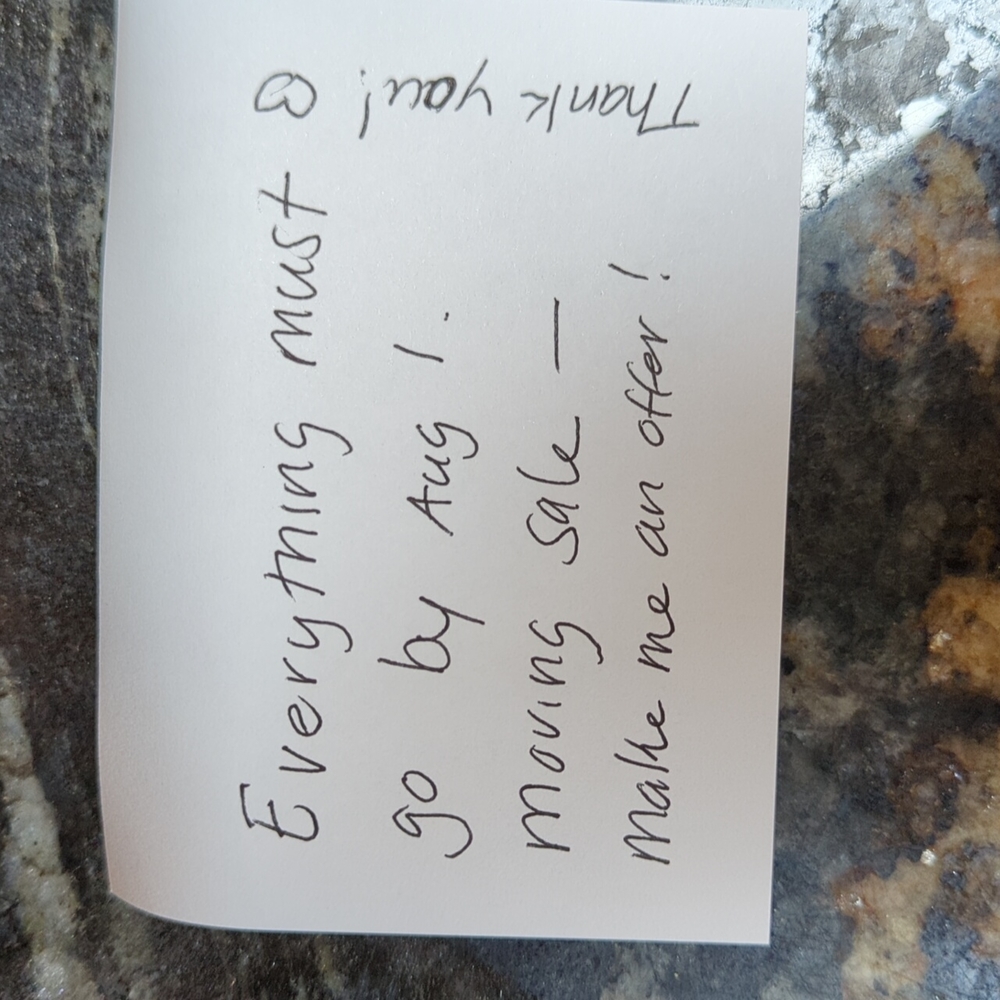 Everything must
go by Aug 1.
moving sale —
make me an offer!
Thank you!